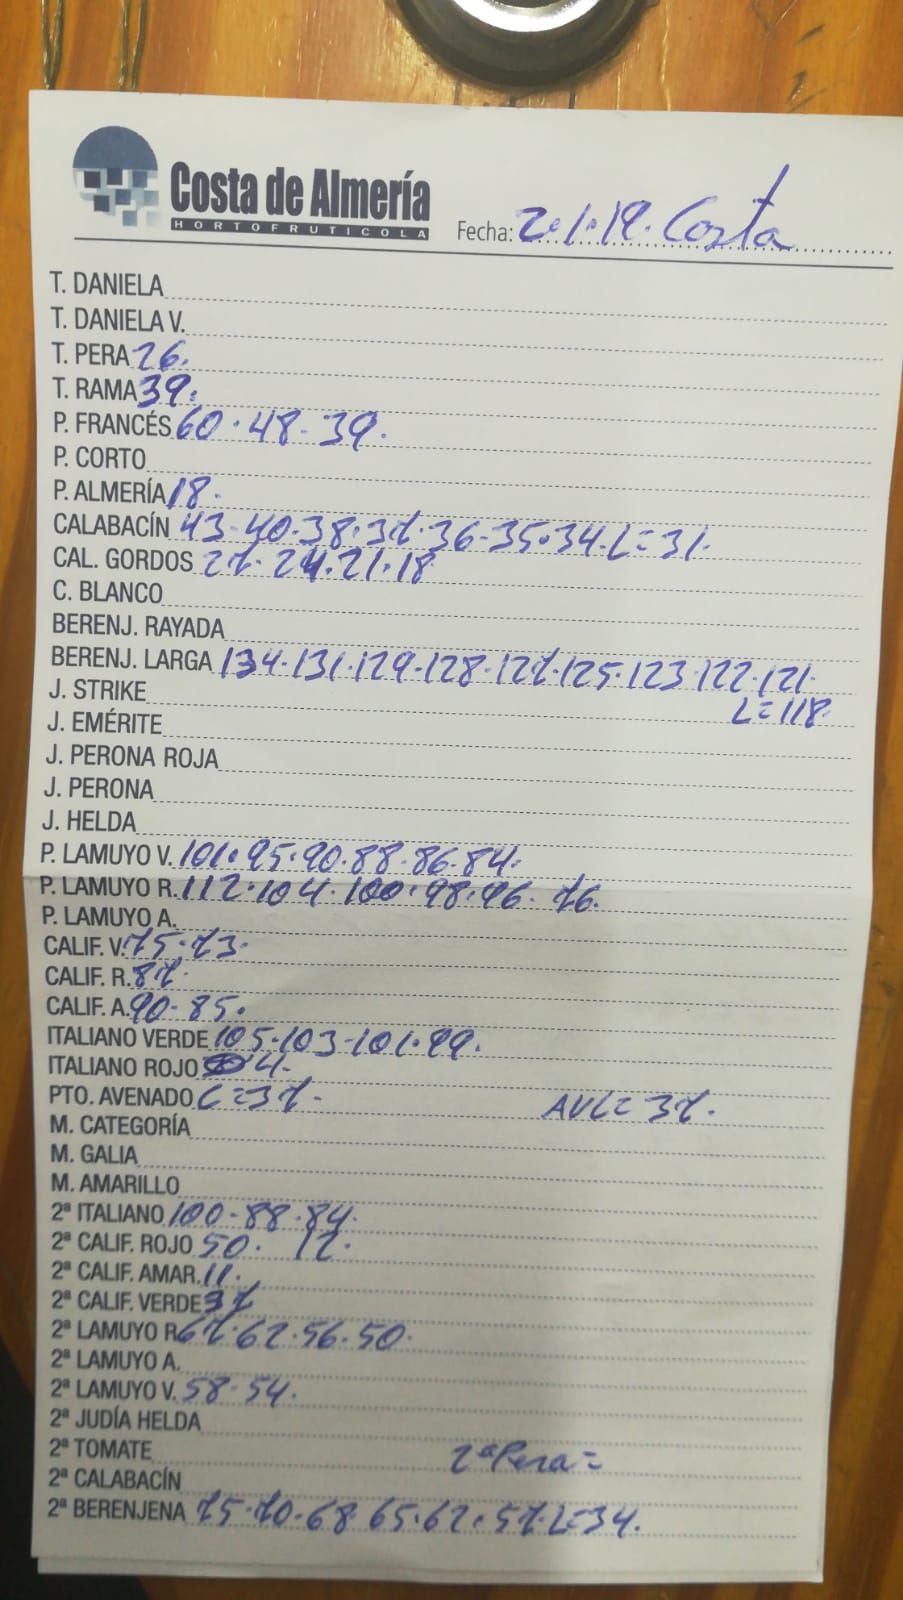 Costa de Almería
HORTOFRUTICOLA
Fecha: 2.1.19. Costa
T. DANIELA
T. DANIELA V.
T. PERA 26.
T. RAMA 39.
P. FRANCÉS 60.48-39.
P. CORTO
P. ALMERÍA 18.
CALABACÍN 43-40.38.37.36-35.34.L=31.
CAL. GORDOS 27.24.21.18
C. BLANCO
BERENJ. RAYADA
BERENJ. LARGA 134.131.129-128.127.125.123.122.121.
J. STRIKE
L=118.
J. EMÉRITE
J. PERONA ROJA
J. PERONA
J. HELDA
P. LAMUYO V. 101.95.90.88-86.84.
P. LAMUYO R. 112.104.100.98.96. 76.
P. LAMUYO A.
CALIF. V. 75.73.
CALIF. R. 87.
CALIF. A. 90-85.
ITALIANO VERDE 105.103-101.99.
ITALIANO ROJO 4.
PTO. AVENADO C=37. AVL=37.
M. CATEGORÍA
M. GALIA
M. AMARILLO
2ª ITALIANO 100-88.84.
2ª CALIF. ROJO 50. 12.
2ª CALIF. AMAR. 11.
2ª CALIF. VERDE 37
2ª LAMUYO R. 67.62.56.50.
2ª LAMUYO A.
2ª LAMUYO V. 58-54.
2ª JUDÍA HELDA
2ª TOMATE 2ª Pera=
2ª CALABACÍN
2ª BERENJENA 75.70.68.65.62.57.L=34.